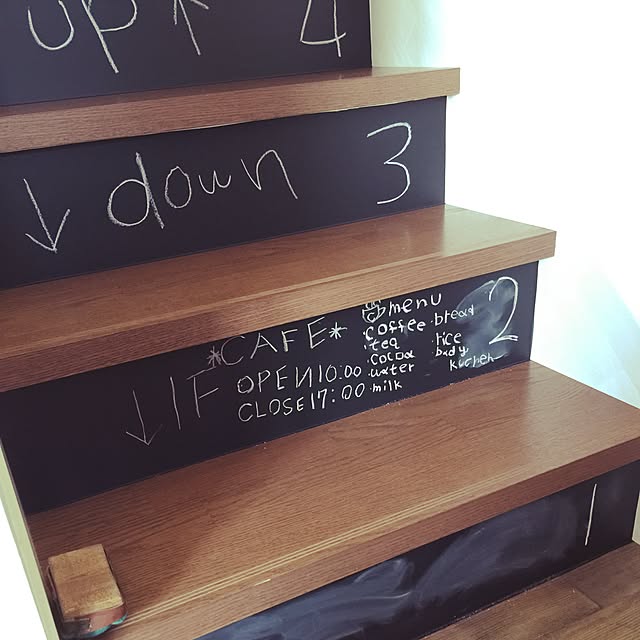 up ↑ 4
↓ down 3
*CAFE*
↓ 1F OPEN 10:00
CLOSE 17:00
menu
coffee
tea
cocoa
water
milk
bread
rice
2
1